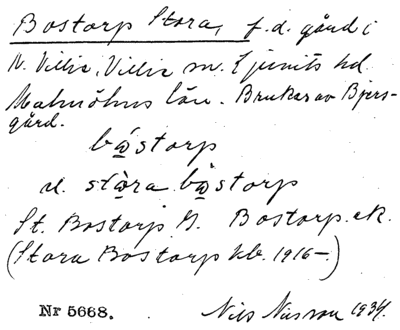 Bostorp Stora, f.d. gård i
N. Villie, Villie sn. Ljunits hd.
Malmöhus län. Brukas av Bjers-
gård.
båstorp
el. stora båstorp
St. Bostorp G. Bostorp. ek.
(Stora Bostorp kb. 1916–)
Nr 5668. Nils Nilsson 1934.